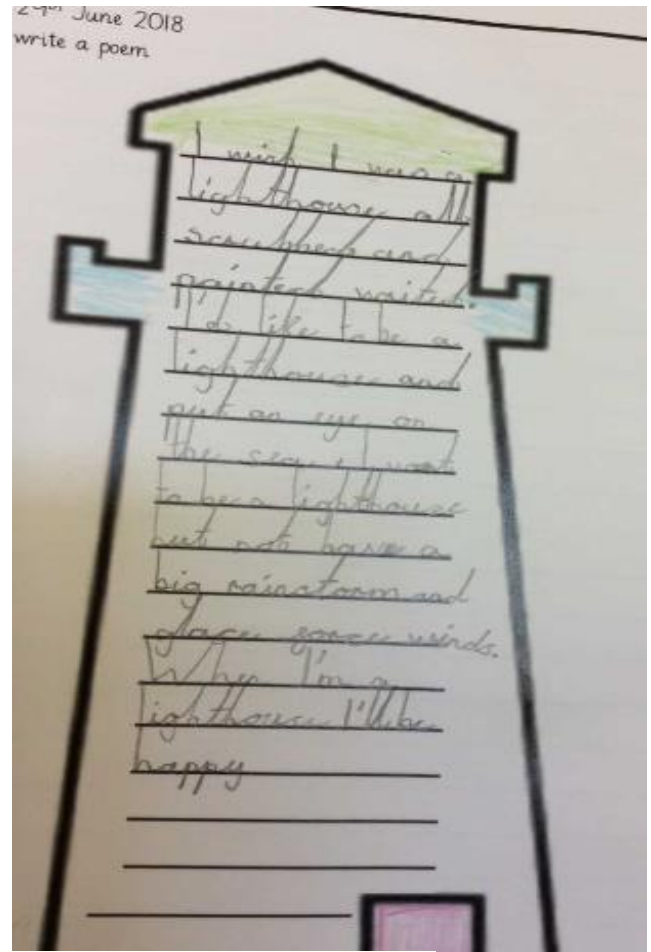 29th June 2018
write a poem
I wish I was a
lighthouse all
scrubbed and
painted waited.
I'd like to be a
lighthouse and
put an eye on
the sea. I want
to be a lighthouse
but not have a
big rainstorm and
winds.
When I'm a
lighthouse I'll be
happy